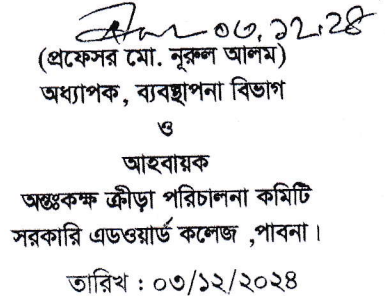 ০৩.১২.২৪
(প্রফেসর মো. নূরুল আলম)
অধ্যাপক, ব্যবস্থাপনা বিভাগ
ও
আহবায়ক
অন্তঃকক্ষ ক্রীড়া পরিচালনা কমিটি
সরকারি এডওয়ার্ড কলেজ ,পাবনা।
তারিখ : ০৩/১২/২০২৪